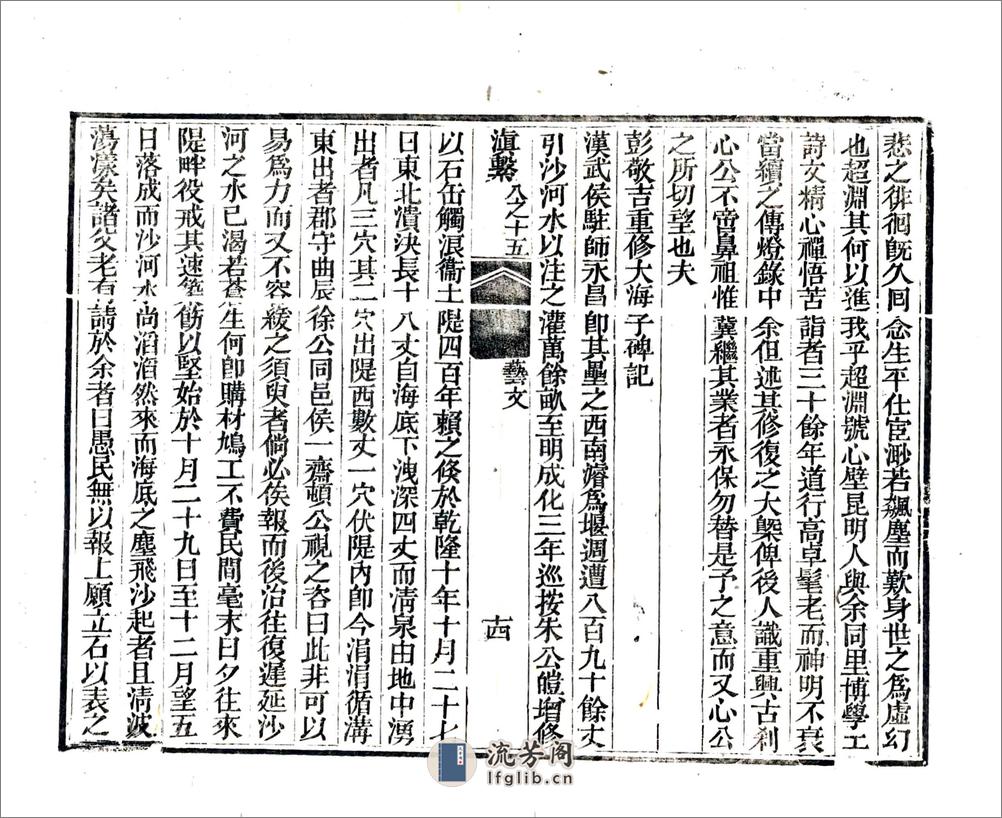 悲之徘徊旣久同念生平仕宦渺若飄塵而歎身世之爲虛幻
也超淵其何以進我乎超淵號心壁昆明人與余同里博學工
詩文精心禪悟苦詣者三十餘年道行高卓髦老而神明不衰
當續之傳燈錄中余但述其修復之大槩俾後人識重興古刹
心公不啻鼻祖惟冀繼其業者永保勿替是予之意而又心公
之所切望也夫
彭敬吉重修大海子碑記
漢武侯駐師永昌卽其壘之西南濬爲堰週遭八百九十餘丈
引沙河水以注之灌萬餘畝至明成化三年巡按朱公皚增修
滇繫 八之十五 藝文 十四
以石缶觸浪衞土隄四百年賴之倐於乾隆十年十月二十七
日東北潰決長十八丈自海底下洩深四丈而清泉由地中湧
出者凡三穴其二穴出隄西數丈一穴伏隄內卽今涓涓循溝
東出者郡守曲辰徐公同邑侯一齋頓公視之咨曰此非可以
易爲力而又不容緩之須臾者倘必俟報而後治往復遲延沙
河之水已渴若蒼生何卽購材鳩工不費民間毫末日夕往來
隄畔役戒其速築飭以堅始於十月二十九日至十二月望五
日落成而沙河水尚滔滔然來而海底之塵飛沙起者且清波
蕩漾矣諸父老有請於余者曰愚民無以報上願立石以表之
流芳阁
lfglib.cn